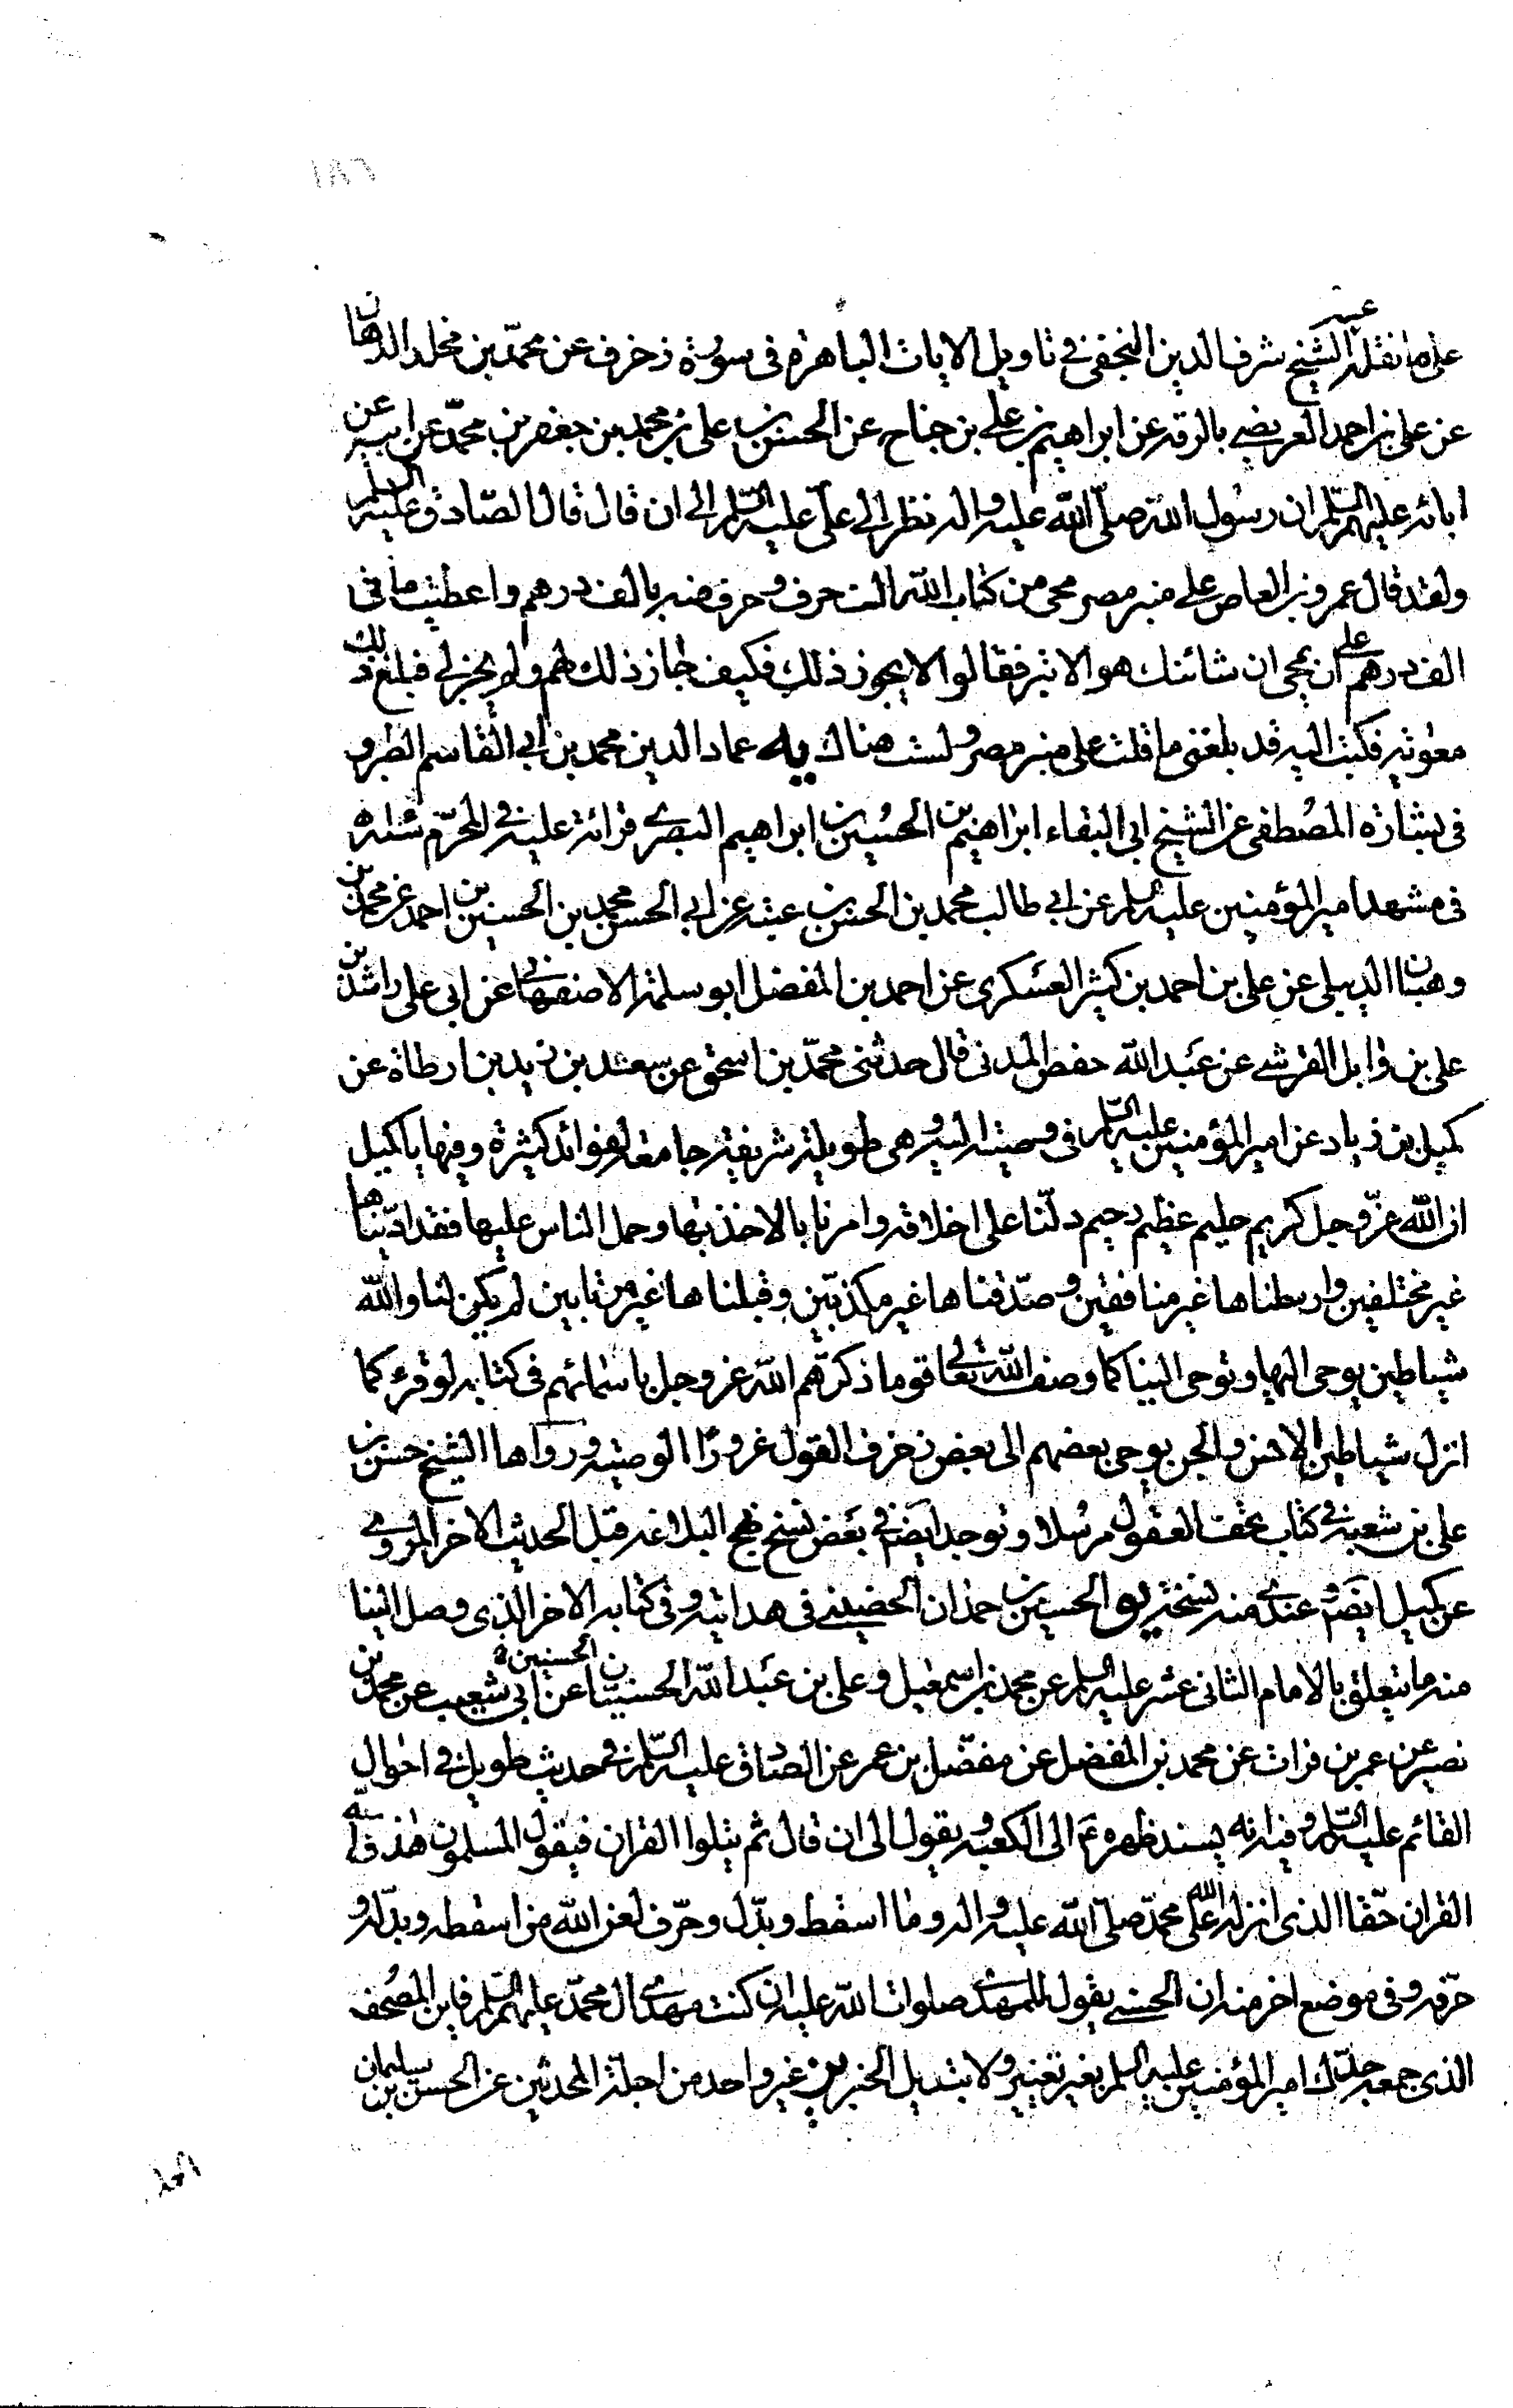 على ما نقله عنه الشيخ شرف الدين النجفي في تاويل الايات الباهرة في سورة زخرف عن محمد بن مخلد الدهان
عن على بن احمد العريضي بالرقه عن ابراهيم بن علي بن جناح عن الحسن بن على بن محمد بن جعفر بن محمد عن ابيه عن
ابائه عليهم السلم ان رسول الله صلى الله عليه واله نظر الى على عليه السلم الى ان قال قال الصادق عليه السلم
ولقد قال عمرو بن العاص على منبر مصر محى من كتاب الله الف حرف وحرف منه بالف درهم واعطيت مائتى
الف درهم على ان يمحى ان شانئك هو الابتر فقالوا لا يجوز ذلك فكيف جاز ذلك لهم ولم يجز لي فبلغ ذلك
معوية فكتب اليه قد بلغنى ما قلت على منبر مصر ولست هناك يه عماد الدين محمد بن ابي القاسم الطبرى
فى بشارة المصطفى عن الشيخ ابى البقاء ابراهيم بن الحسين بن ابراهيم البصرى قرائة عليه في المحرم سنة
فى مشهد امير المؤمنين عليه السلم عن ابي طالب محمد بن الحسن بن عتبه عن ابي الحسن محمد بن الحسين بن احمد عن محمد بن
وهبان الدبيلى عن على بن احمد بن كثير العسكرى عن احمد بن المفضل ابو سلمة الاصفهانى عن ابى على راشد بن
على بن وايل القرشي عن عبد الله حفص المدنى قال حدثنى محمد بن اسحق عن سعيد بن زيد بن ارطاة عن
كميل بن زياد عن امير المؤمنين عليه السلم فى وصيته اليه وهى طويلة شريفة جامعة لفوائد كثيرة وفيها يا كميل
ان الله عز وجل كريم حليم عظيم رحيم دلنا على اخلاقه وامرنا بالاخذ بها وحمل الناس عليها فقد اديناها
غير مختلفين وارسلناها غير منافقين وصدقناها غير مكذبين وقبلناها غير مرتابين لم يكن لنا والله
شياطين يوحى اليها وتوحى الينا كما وصف الله تعالى قوما ذكرهم الله عز وجل باسمائهم فى كتابه لو قرء كما
انزل شياطين الانس والجن يوحى بعضهم الى بعض زخرف القول غرورا الوصية ورواها الشيخ حسن بن
على بن شعبه في كتاب تحف العقول مرسلا وتوجد ايضا في بعض نسخ نهج البلاغه قبل الحديث الاخر المروى
عن كميل ايضا وعندى منه نسخة يو الحسين بن حمدان الحضينى فى هدايته وفى كتابه الاخر الذى وصل الينا
منه ما يتعلق بالامام الثانى عشر عليه السلم عن محمد بن اسمعيل وعلى بن عبد الله الحسنيين الحسينين عن ابى شعيب عن محمد بن
نصير عن عمر بن فرات عن محمد بن المفضل عن مفضل بن عمر عن الصادق عليه السلم في حديث طويل في احوال
القائم عليه السلم وفيه انه يسند ظهره الى الكعبه ويقول الى ان قال ثم يتلوا القران فيقول المسلمون هذا والله
القران حقا الذى انزله الله على محمد صلى الله عليه واله وما اسقط وبدل وحرف لعن الله من اسقطه وبدله و
حرفه وفى موضع اخر منه ان الحسنى يقول للمهدى صلوات الله عليه ان كنت مهدى ال محمد عليهم السلم فاين المصحف
الذى جمعه جدك امير المؤمنين عليه السلم بغير تغيير ولا تبديل الخبر يز غير واحد من اجلة المحدثين عن الحسن بن سليمان